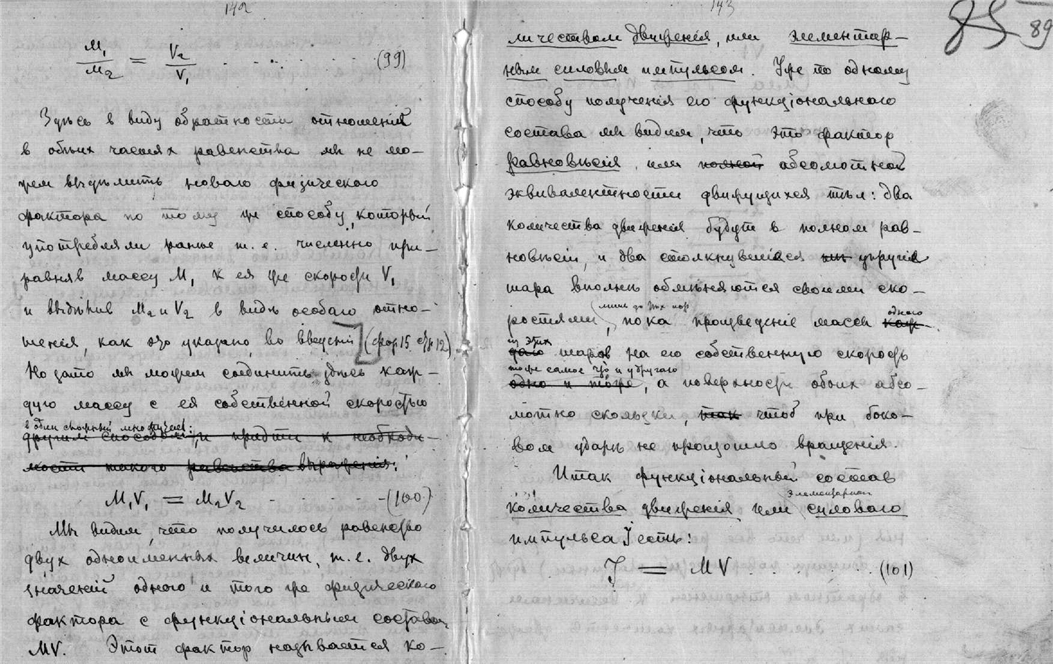 142
M₁/M₂ = V₂/V₁ . . . . . (99)
Здѣсь в виду обратности отношенія
в обѣих частях равенства мы не мо-
жем выдѣлить новаго физическаго
фактора по тому же способу, который
употребляли ранѣе т. е. численно при-
равняв массу M₁ к ея же скорости V₁
и выдѣлив M₂ и V₂ в видѣ особаго отно-
шенія как это указано во введеніи (фор. 15 стр 12)
Но зато мы можем соединить здѣсь каж-
дую массу с ея собственной скоростью
в один сложный множитель:
другим способом и придти к необходи-
мости такого равенства выраженія:
M₁V₁ = M₂V₂ - - - - - (100)
Мы видим, что получилось равенство
двух одноименных величин, т. е. двух
значеній одного и того же физическаго
фактора с функціональным составом
MV. Этот фактор называется ко-
143
85 89
личеством движенія, или элементар-
ным силовым импульсом. Уже по одному
способу полученія его функціональнаго
состава мы видим, что это фактор
равновѣсія, или полной абсолютной
эквивалентности движущихся тѣл: два
количества движенія будут в полном рав-
новѣсіи, и два столкнувшіеся упругіе
шара вполнѣ обмѣняются своими ско-
лишь до тѣх пор
ростями, пока произведеніе массы одного
из этих
шаров на его собственную скорость
то же самое что и у другаго
одно и тоже, а поверхности обоих абсо-
лютно скользки, чтоб при боко-
вом ударѣ не произошло вращенія.
Итак функціональный состав
элементарнаго
количества движенія или силоваго
импульса J есть:
J = MV . . . . . (101)